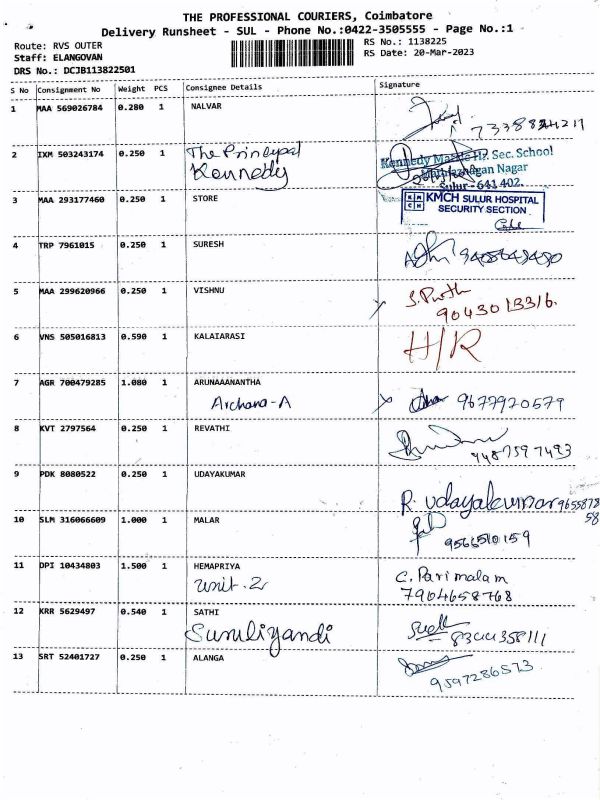 THE PROFESSIONAL COURIERS, Coimbatore
Delivery Runsheet - SUL - Phone No.:0422-3505555 - Page No.:1
Route: RVS OUTER
Staff: ELANGOVAN
DRS No.: DCJB113822501
RS No.: 1138225
RS Date: 20-Mar-2023
S No Consignment No Weight PCS Consignee Details Signature
1 MAA 569026784 0.280 1 NALVAR
2 IXM 503243174 0.250 1 The Principal
Kennedy
Kennedy Hr. Sec. School
Nagar
Sulur - 641 402.
3 MAA 293177460 0.250 1 STORE
KMCH SULUR HOSPITAL
SECURITY SECTION
4 TRP 7961015 0.250 1 SURESH
5 MAA 299620966 0.250 1 VISHNU
9043013316.
6 VNS 505016813 0.590 1 KALAIARASI H/R
7 AGR 700479285 1.080 1 ARUNAAANANTHA
Archana-A 9677920579
8 KVT 2797564 0.250 1 REVATHI
9487597493
9 PDK 8080522 0.250 1 UDAYAKUMAR
R. Udayakumar 9655878
58
10 SLM 316066609 1.000 1 MALAR
9566510159
11 DPI 10434803 1.500 1 HEMAPRIYA
Unit. 2 C. Parimalam
7904658768
12 KRR 5629497 0.540 1 SATHI
Suruliyandi 8344358111
13 SRT 52401727 0.250 1 ALANGA
9597286573